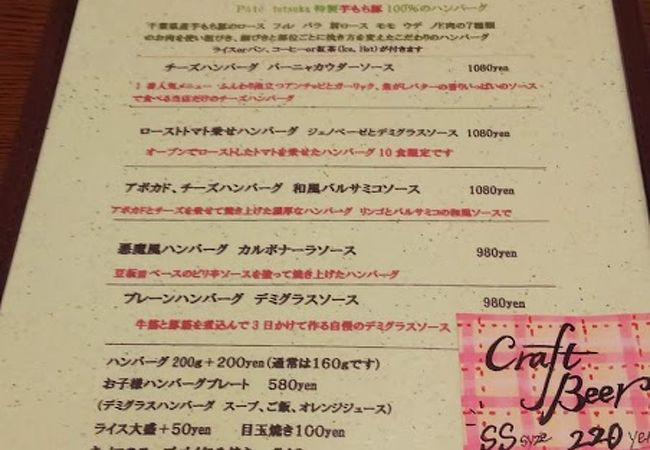 Pâté tetsuka 特製芋もち豚 100%のハンバーグ
千葉県産芋もち豚のロース フル バラ 肩ロース モモ ウデ の7種類
のお肉を使い粗びき、細びきと部位ごとに挽き方を変えたこだわりのハンバーグ
ライスorパン、コーヒーor紅茶(Ice, Hot)が付きます
チーズハンバーグ バーニャカウダーソース 1080yen
1番人気メニュー ふんわり泡立つアンチョビとガーリック、焦がしバターの香りいっぱいのソース
で食べる当店だけのチーズハンバーグ
ローストトマト乗せハンバーグ ジェノベーゼとデミグラスソース 1080yen
オーブンでローストしたトマトを乗せたハンバーグ 10食限定です
アボカド、チーズハンバーグ 和風バルサミコソース 1080yen
アボカドとチーズを乗せて焼き上げた濃厚なハンバーグ リンゴとバルサミコの和風ソースで
悪魔風ハンバーグ カルボナーラソース 980yen
豆板醤ベースのピリ辛ソースを塗って焼き上げたハンバーグ
プレーンハンバーグ デミグラスソース 980yen
牛筋と豚筋を煮込んで3日かけて作る自慢のデミグラスソース
ハンバーグ200g+200yen(通常は160gです)
お子様ハンバーグプレート 580yen
(デミグラスハンバーグ スープ、ご飯、オレンジジュース)
ライス大盛+50yen 目玉焼き100yen
Craft
Beer
SS syze 220 yen